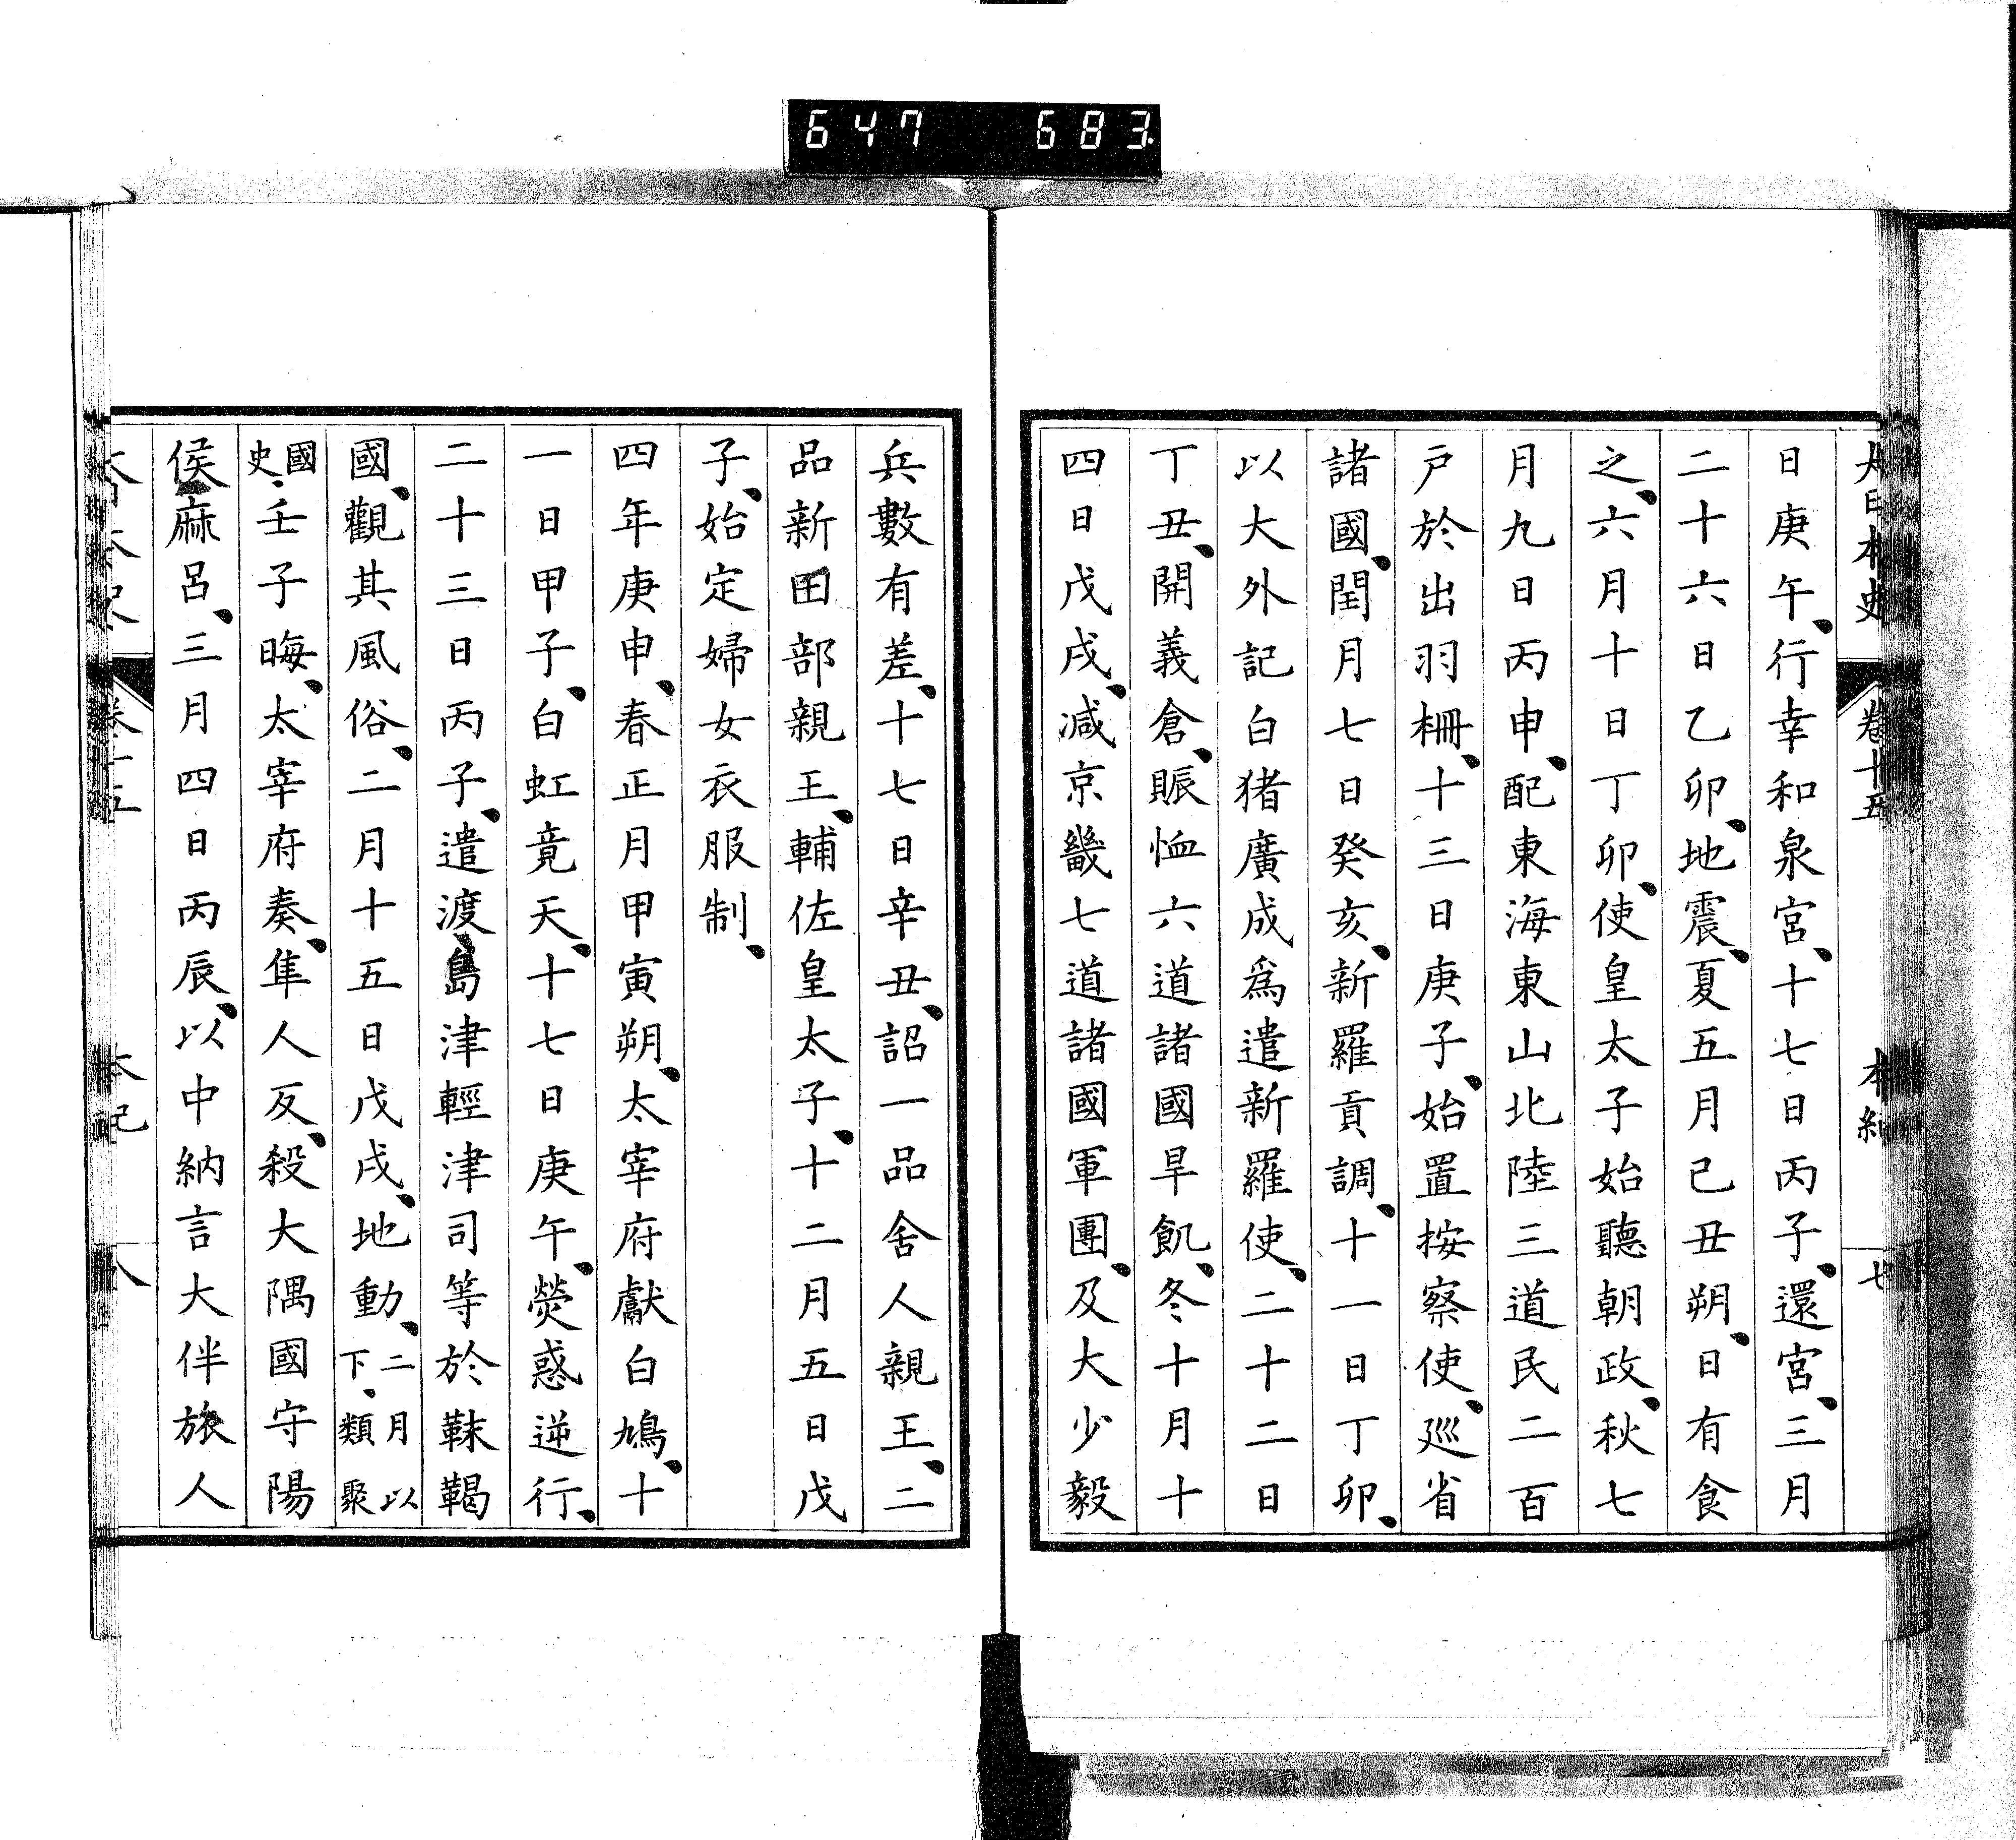 647 683.
大日本史 卷十五 本紀 七
日庚午、行幸和泉宮、十七日丙子、還宮、三月
二十六日乙卯、地震、夏五月己丑朔、日有食
之、六月十日丁卯、使皇太子始聽朝政、秋七
月九日丙申、配東海東山北陸三道民二百
戸於出羽柵、十三日庚子、始置按察使、巡省
諸國、閏月七日癸亥、新羅貢調、十一日丁卯、
以大外記白猪廣成爲遣新羅使、二十二日
丁丑、開義倉、賑恤六道諸國旱飢、冬十月十
四日戊戌、減京畿七道諸國軍團、及大少毅
兵數有差、十七日辛丑、詔一品舍人親王、二
品新田部親王、輔佐皇太子、十二月五日戊
子、始定婦女衣服制、
四年庚申、春正月甲寅朔、太宰府獻白鳩、十
一日甲子、白虹竟天、十七日庚午、熒惑逆行、
二十三日丙子、遣渡島津輕津司等於靺鞨
國、觀其風俗、二月十五日戊戌、地動、二月以下、類聚
國史、壬子晦、太宰府奏、隼人反、殺大隅國守陽
侯麻呂、三月四日丙辰、以中納言大伴旅人
大日本史 卷十五 本紀 八